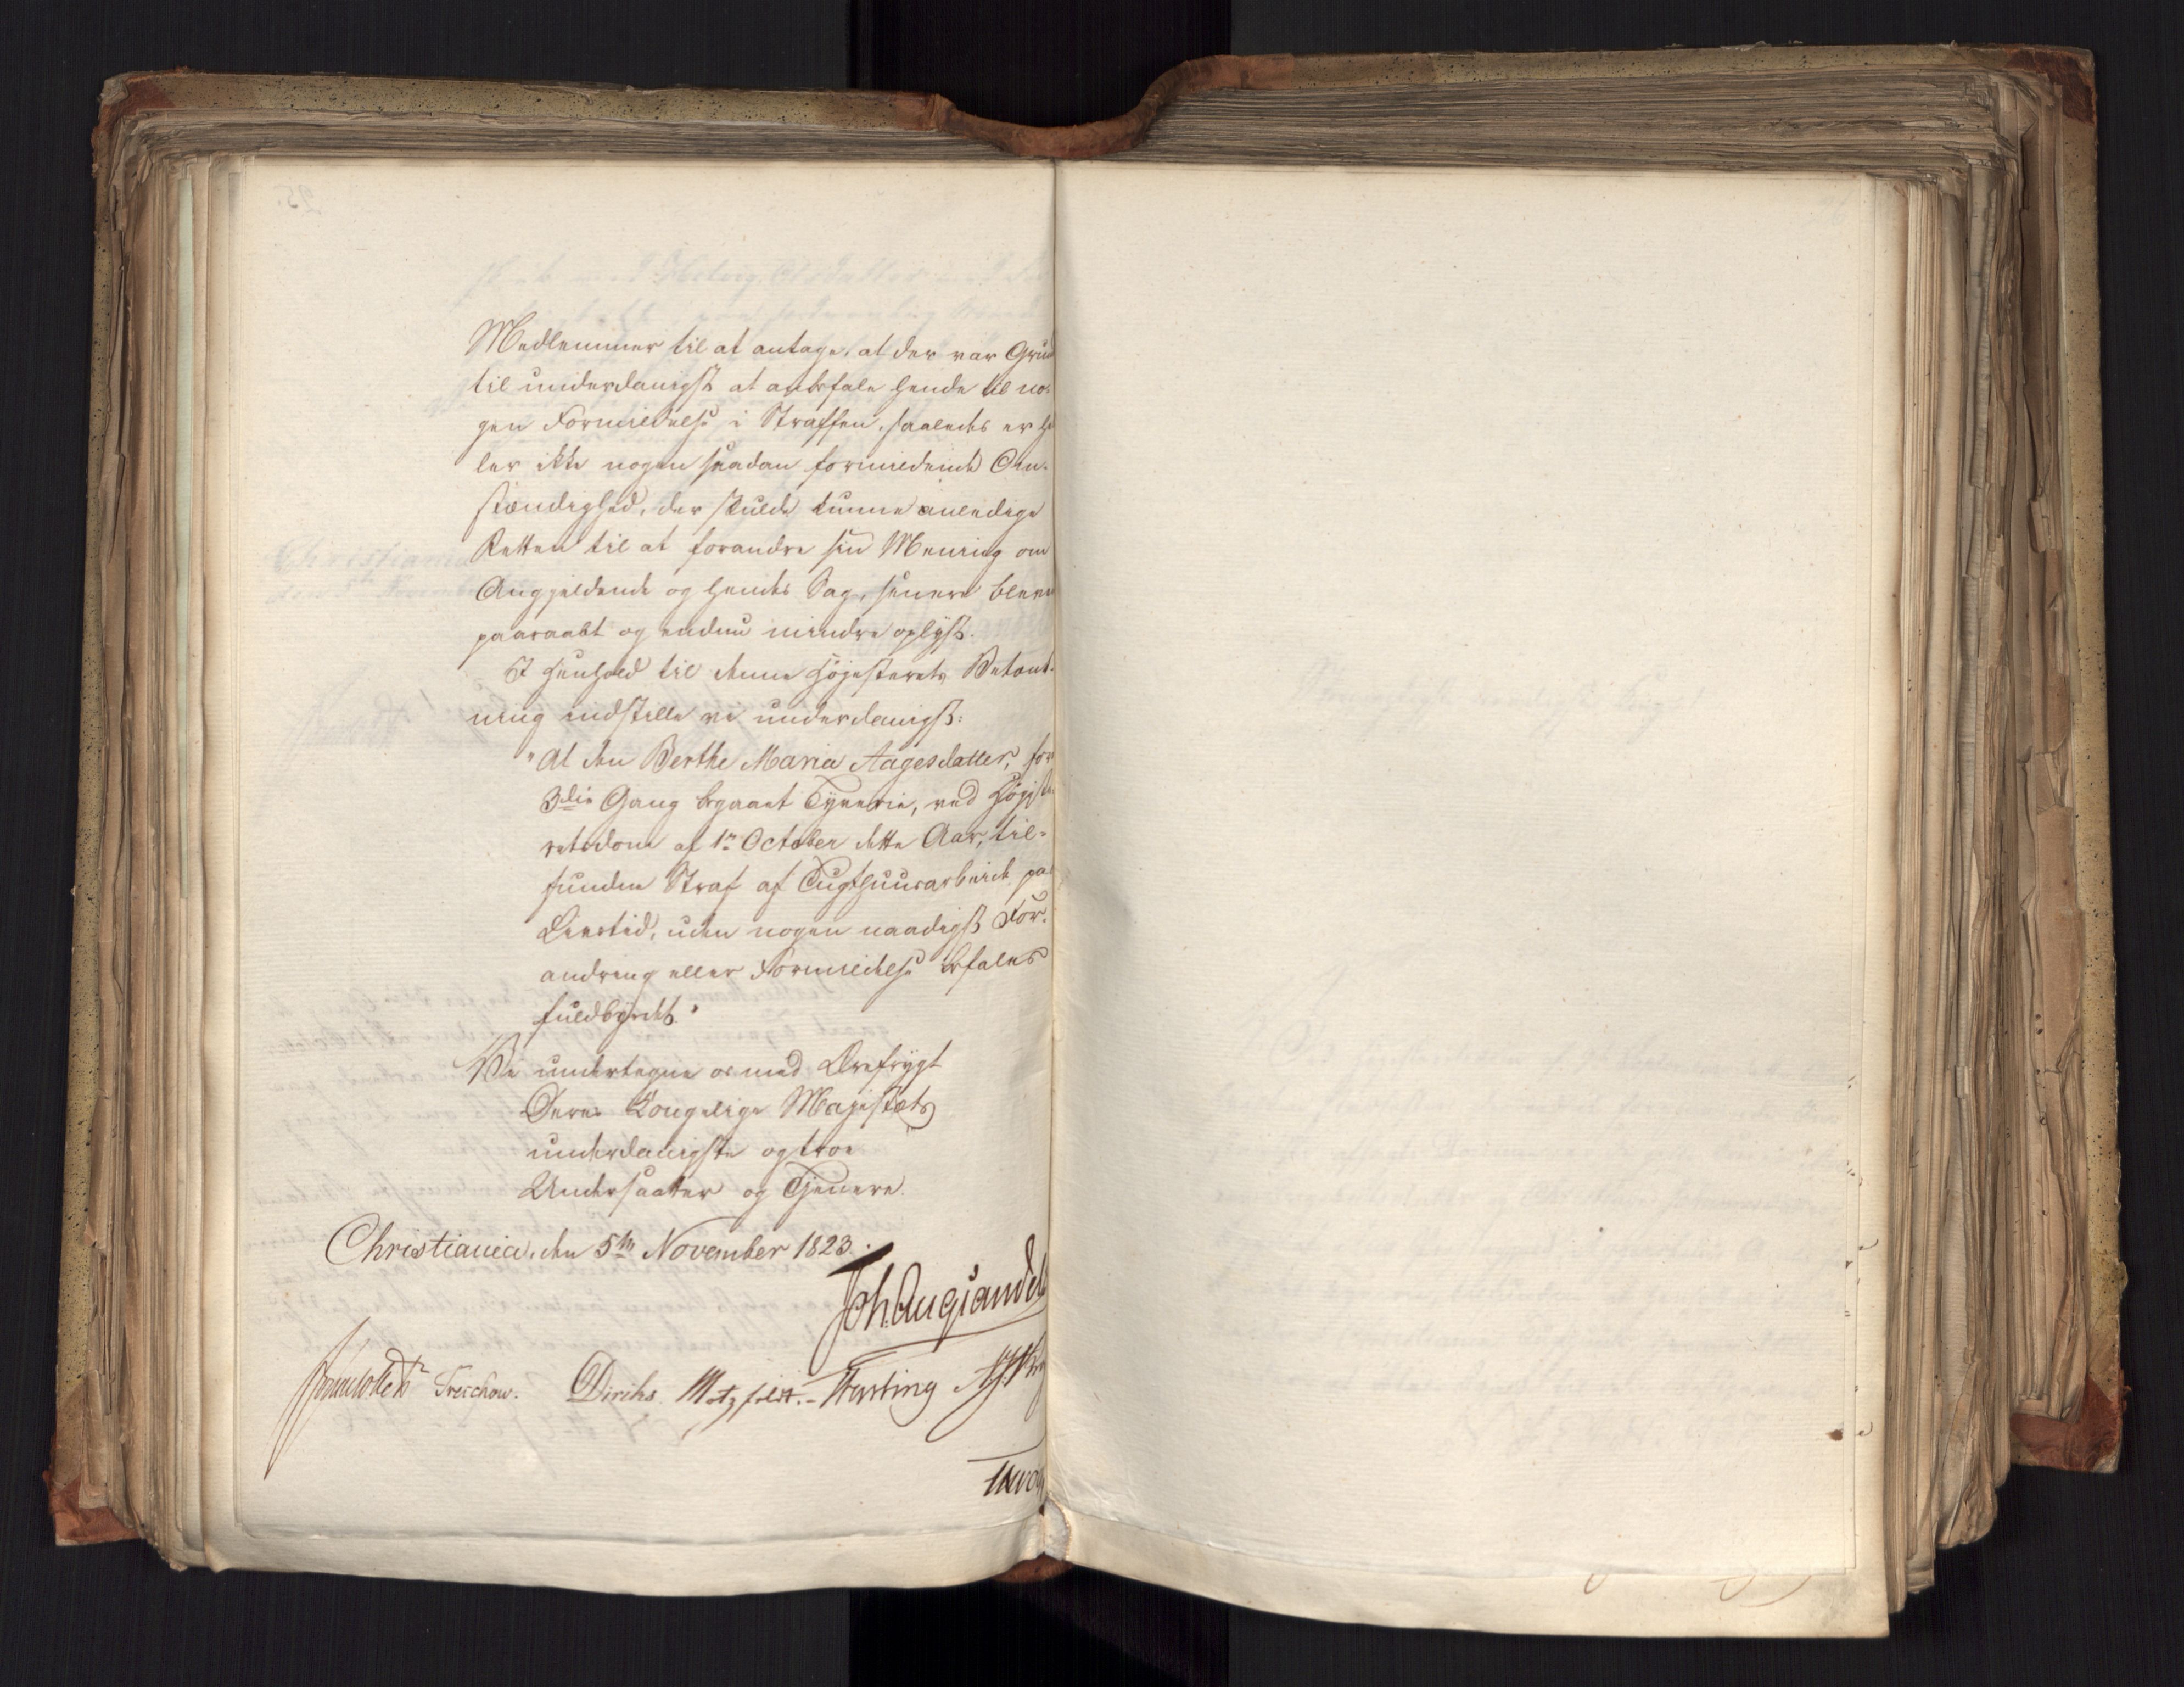 Medlemmer til at antage, at der var Grund
til underdanigst at anbefale hende til no-
gen Formildelse i Straffen, saaledes er hel
ler ikke nogen saadan formildende Om-
stændighed, der skulde kunne anledige
Retten til at forandre sin Mening om
Angjeldende og hendes Sag, senere bleven
paaraabt og endnu mindre oplyst.
I Henhold til denne Høiesterets Betænk-
ning indstille vi underdanigst:
"At den Berthe Maria Aagesdatter, for
3die Gang begaaet Tyverie, ved Høieste-
retsdom af 1ste October dette Aar, til-
fundne Straf af Tugthuusarbeide paa
Livstid, uden nogen naadigst For-
andring eller Formildelse befales
fuldbyrdet."
Vi undertegne os med Ærefrygt
Deres Kongelige Majestæts
underdanigste og troe
Undersaatter og Tjenere
Christiania, den 5te November 1823.
Joh. Aug. Sandels
Sommerhielm Treschow. Diriks Motzfeldt.- Fasting